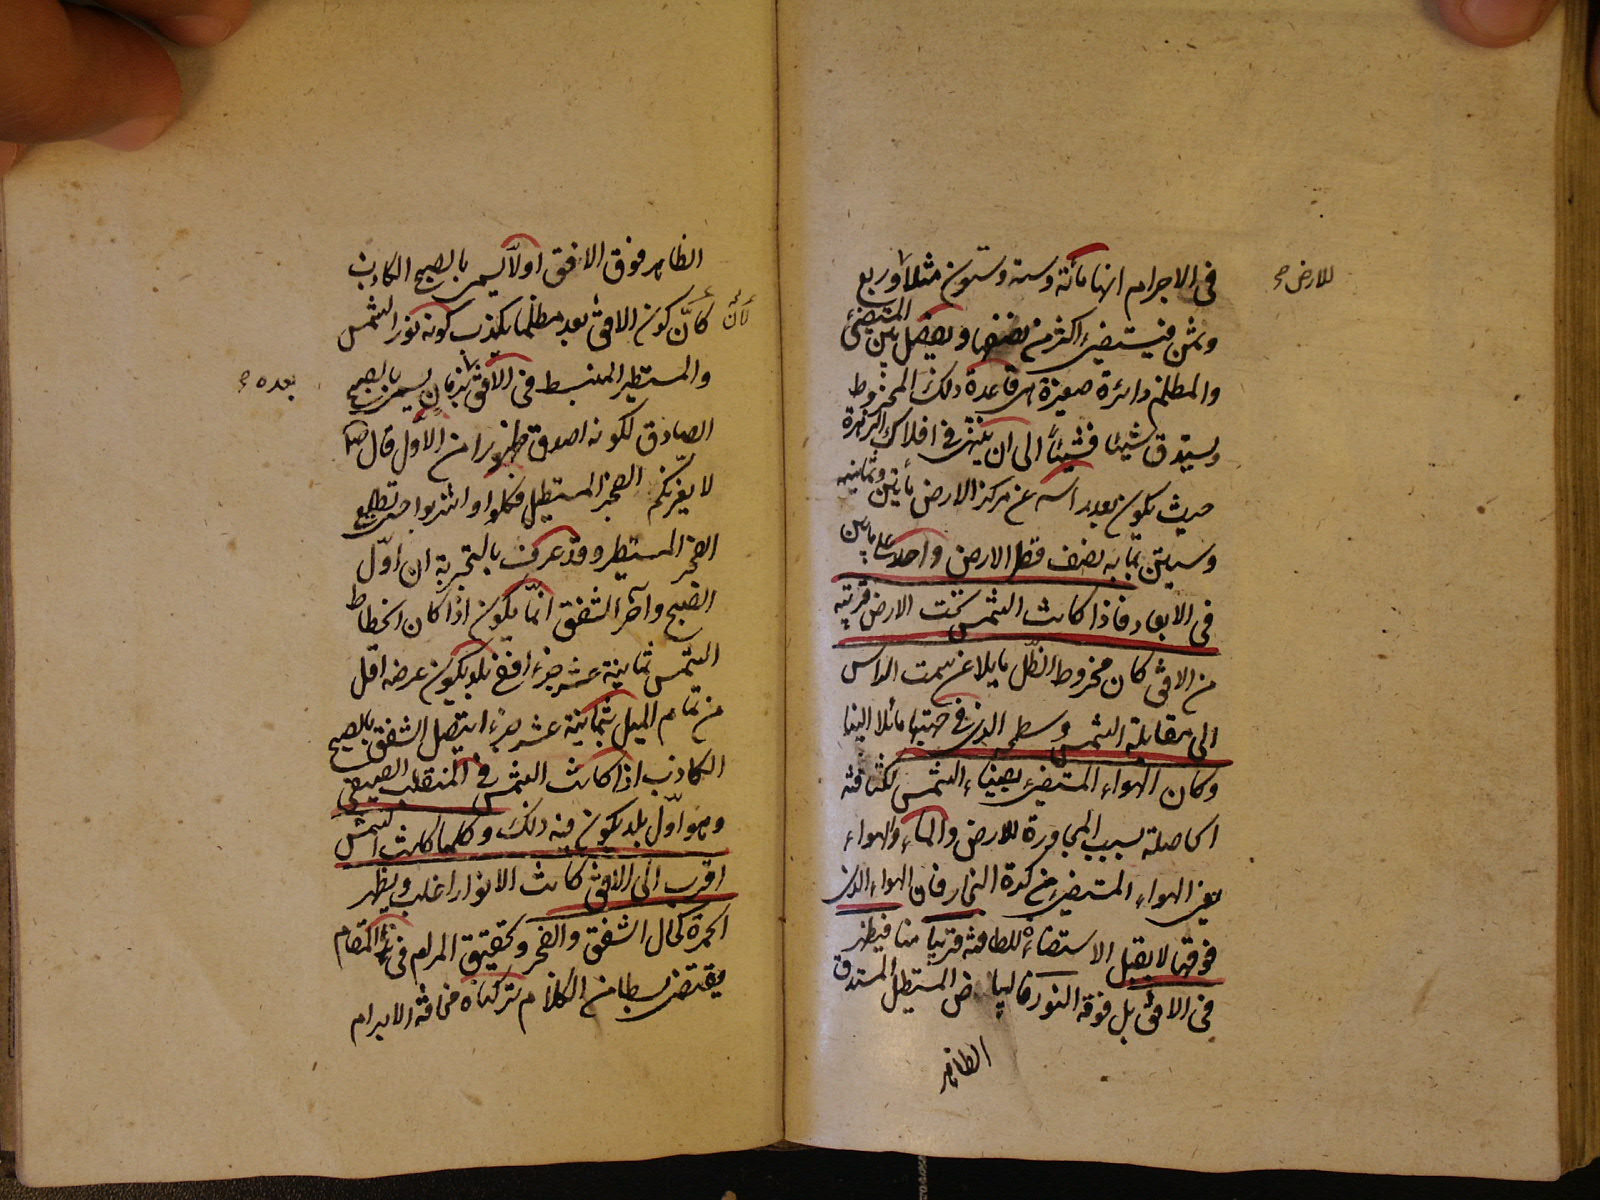 للارض صح
فى الاجرام انها مائة وستة وستون مثلا وربع
وثمن فيستضئ اكثر من نصفها ويفصل بين المستضئ
والمظلم دائرة صغيرة هى قاعدة ذلك المخروط
ويستدق شيئا فشيئا الى ان ينتهى فى افلاك الزهرة
حيث يكون بعد راسه عن مركز الارض مأتين وثمانية
وستين بما به نصف قطر الارض واحد على ما بين
فى الابعاد فاذا كانت الشمس تحت الارض قريبة
من الافق كان مخروط الظل مايلا عن سمت الراس
الى مقابلة الشمس وسطحه الذى فى جهتها مائلا الينا
وكان الهواء المستضئ بضياء الشمس لكثافته
الحاصلة بسبب المجاورة للارض والماء والهواء
يعنى الهواء المستضئ من كرة البخار فان الهواء الذى
فوقها لا يقبل الاستضاءة للطافته قريبا منا فيظهر
فى الافق بل فوقه النور كالبياض المستطيل المستدق
الظاهر
الظاهر فوق الافق اولا يسمى بالصبح الكاذب
كأن كون الافق بعد مظلما يكذب كونه نور الشمس
لأن
والمستطير المنبسط فى الافق بزمان يسمى بالصبح
بعده صح
الصادق لكونه اصدق ظهورا من الاول قال صلعم
لا يغرنكم الفجر المستطيل فكلوا واشربوا حتى تطلع
الفجر المستطير وقد عرف بالتجربة ان اول
الصبح وآخر الشفق انما يكون اذا كان انحطاط
الشمس ثمانية عشر جزءا ففى بلد يكون عرضه اقل
من تمام الميل بثمانية عشر جزءا يتصل الشفق بالصبح
الكاذب اذا كانت الشمس فى المنقلب الصيفى
وهو اول بلد يكون فيه ذلك وكلما كانت الشمس
اقرب الى الافق كانت الانوار اغلب ويظهر
الحمرة كحال الشفق والفجر وتحقيق المرام فى هذا المقام
يقتضى بسطا من الكلام تركناه مخافة الابرام